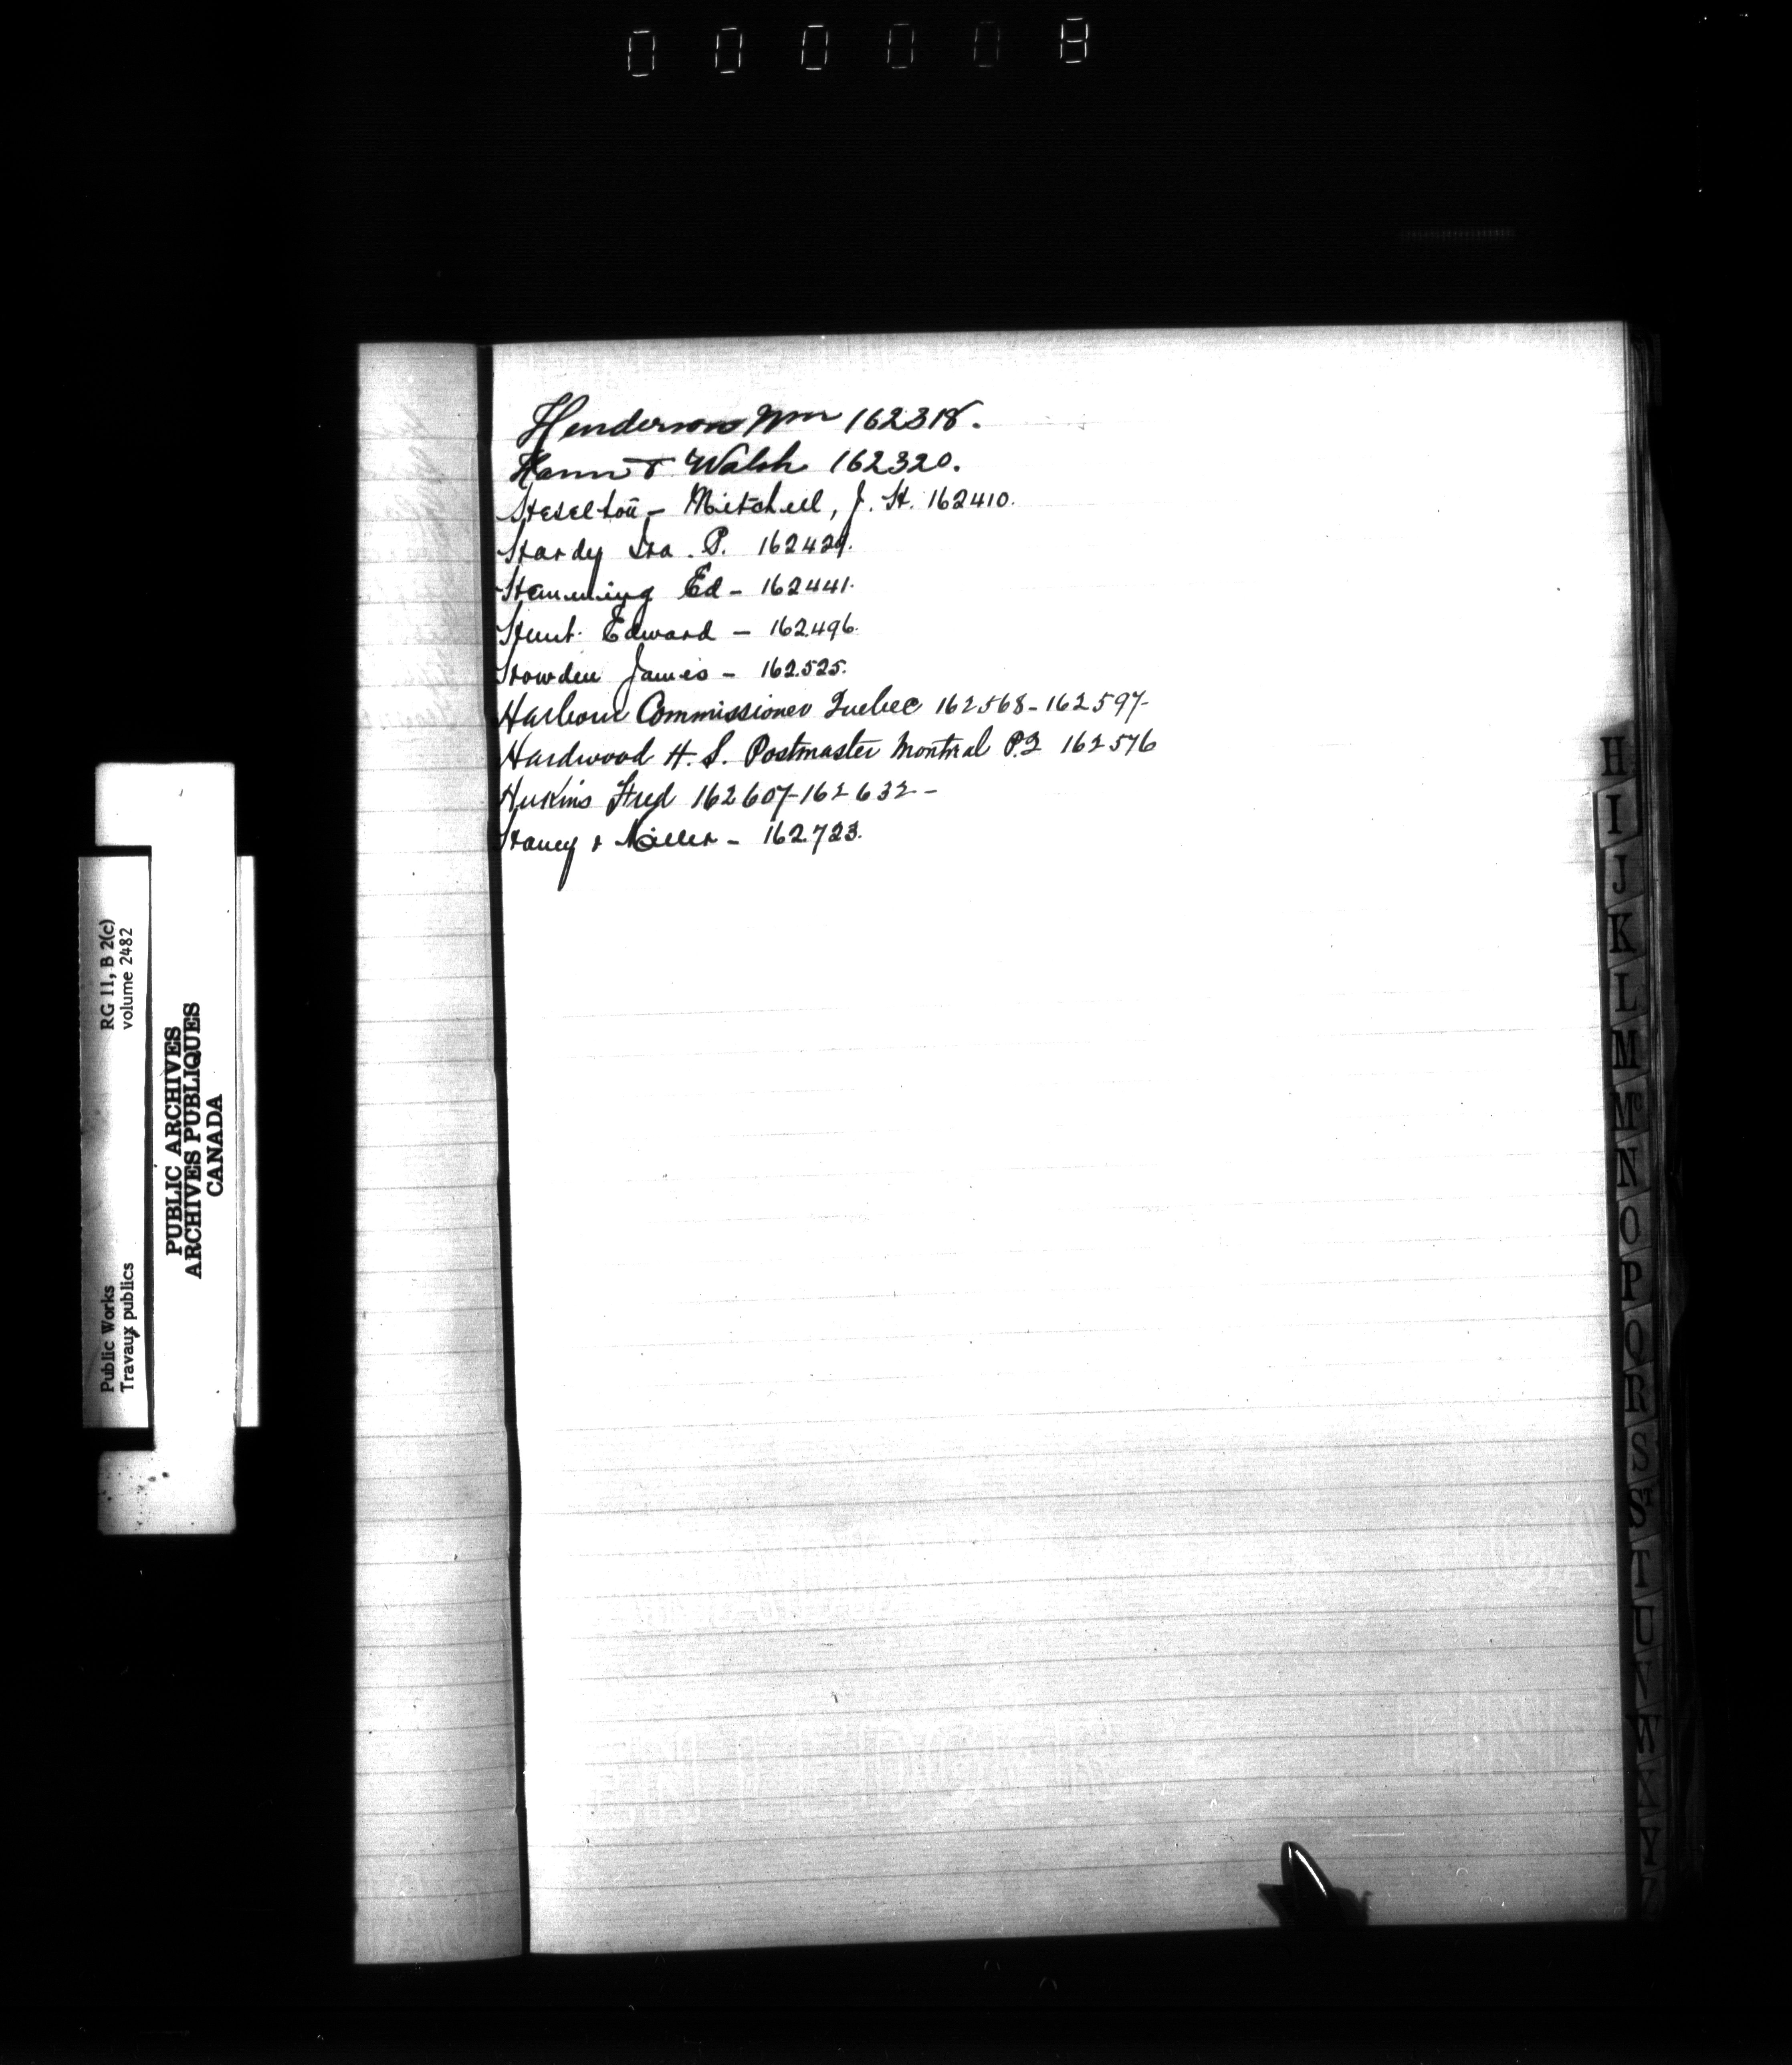 000008
Henderson Wm 162318.
Hann & Walsh 162320.
Heselton - Mitchell, J. H. 162410.
Hardy Ira. P. 162429.
Hemming Ed - 162441.
Hunt. Edward - 162496.
Howden James - 162525.
Harbour Commissioner Quebec 162568-162597-
Hardwood H. S. Postmaster Montreal P.Q 162576
Hukins Fred 162607-162632-
Haney & Miller - 162723.
H
I
J
K
L
M
Mc
N
O
P
Q
R
S
St
T
U
V
W
X
Y
RG 11, B 2(c)
volume 2482
Public Works
Travaux publics
PUBLIC ARCHIVES
ARCHIVES PUBLIQUES
CANADA